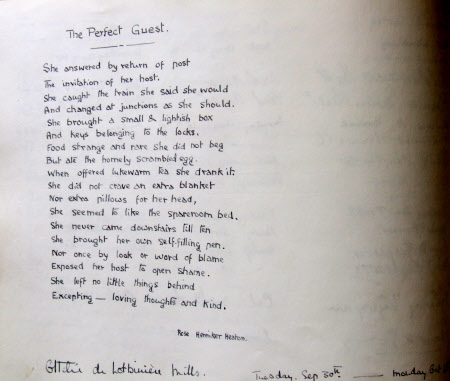 The Perfect Guest.
She answered by return of post
The invitation of her host.
She caught the train she said she would
And changed at junctions as she should.
She brought a small & lightish box
And keys belonging to the locks.
Food strange and rare she did not beg
But ate the homely scrambled egg.
When offered lukewarm tea she drank it.
She did not crave an extra blanket
Nor extra pillows for her head,
She seemed to like the spareroom bed.
She never came downstairs till ten
She brought her own self-filling pen.
Nor once by look or word of blame
Exposed her host to open shame.
She left no little things behind
Excepting — loving thoughts and kind.
Rose Henniker Heaton.
de Lotbinière Mills.
Tuesday, Sep 30th — Monday Oct